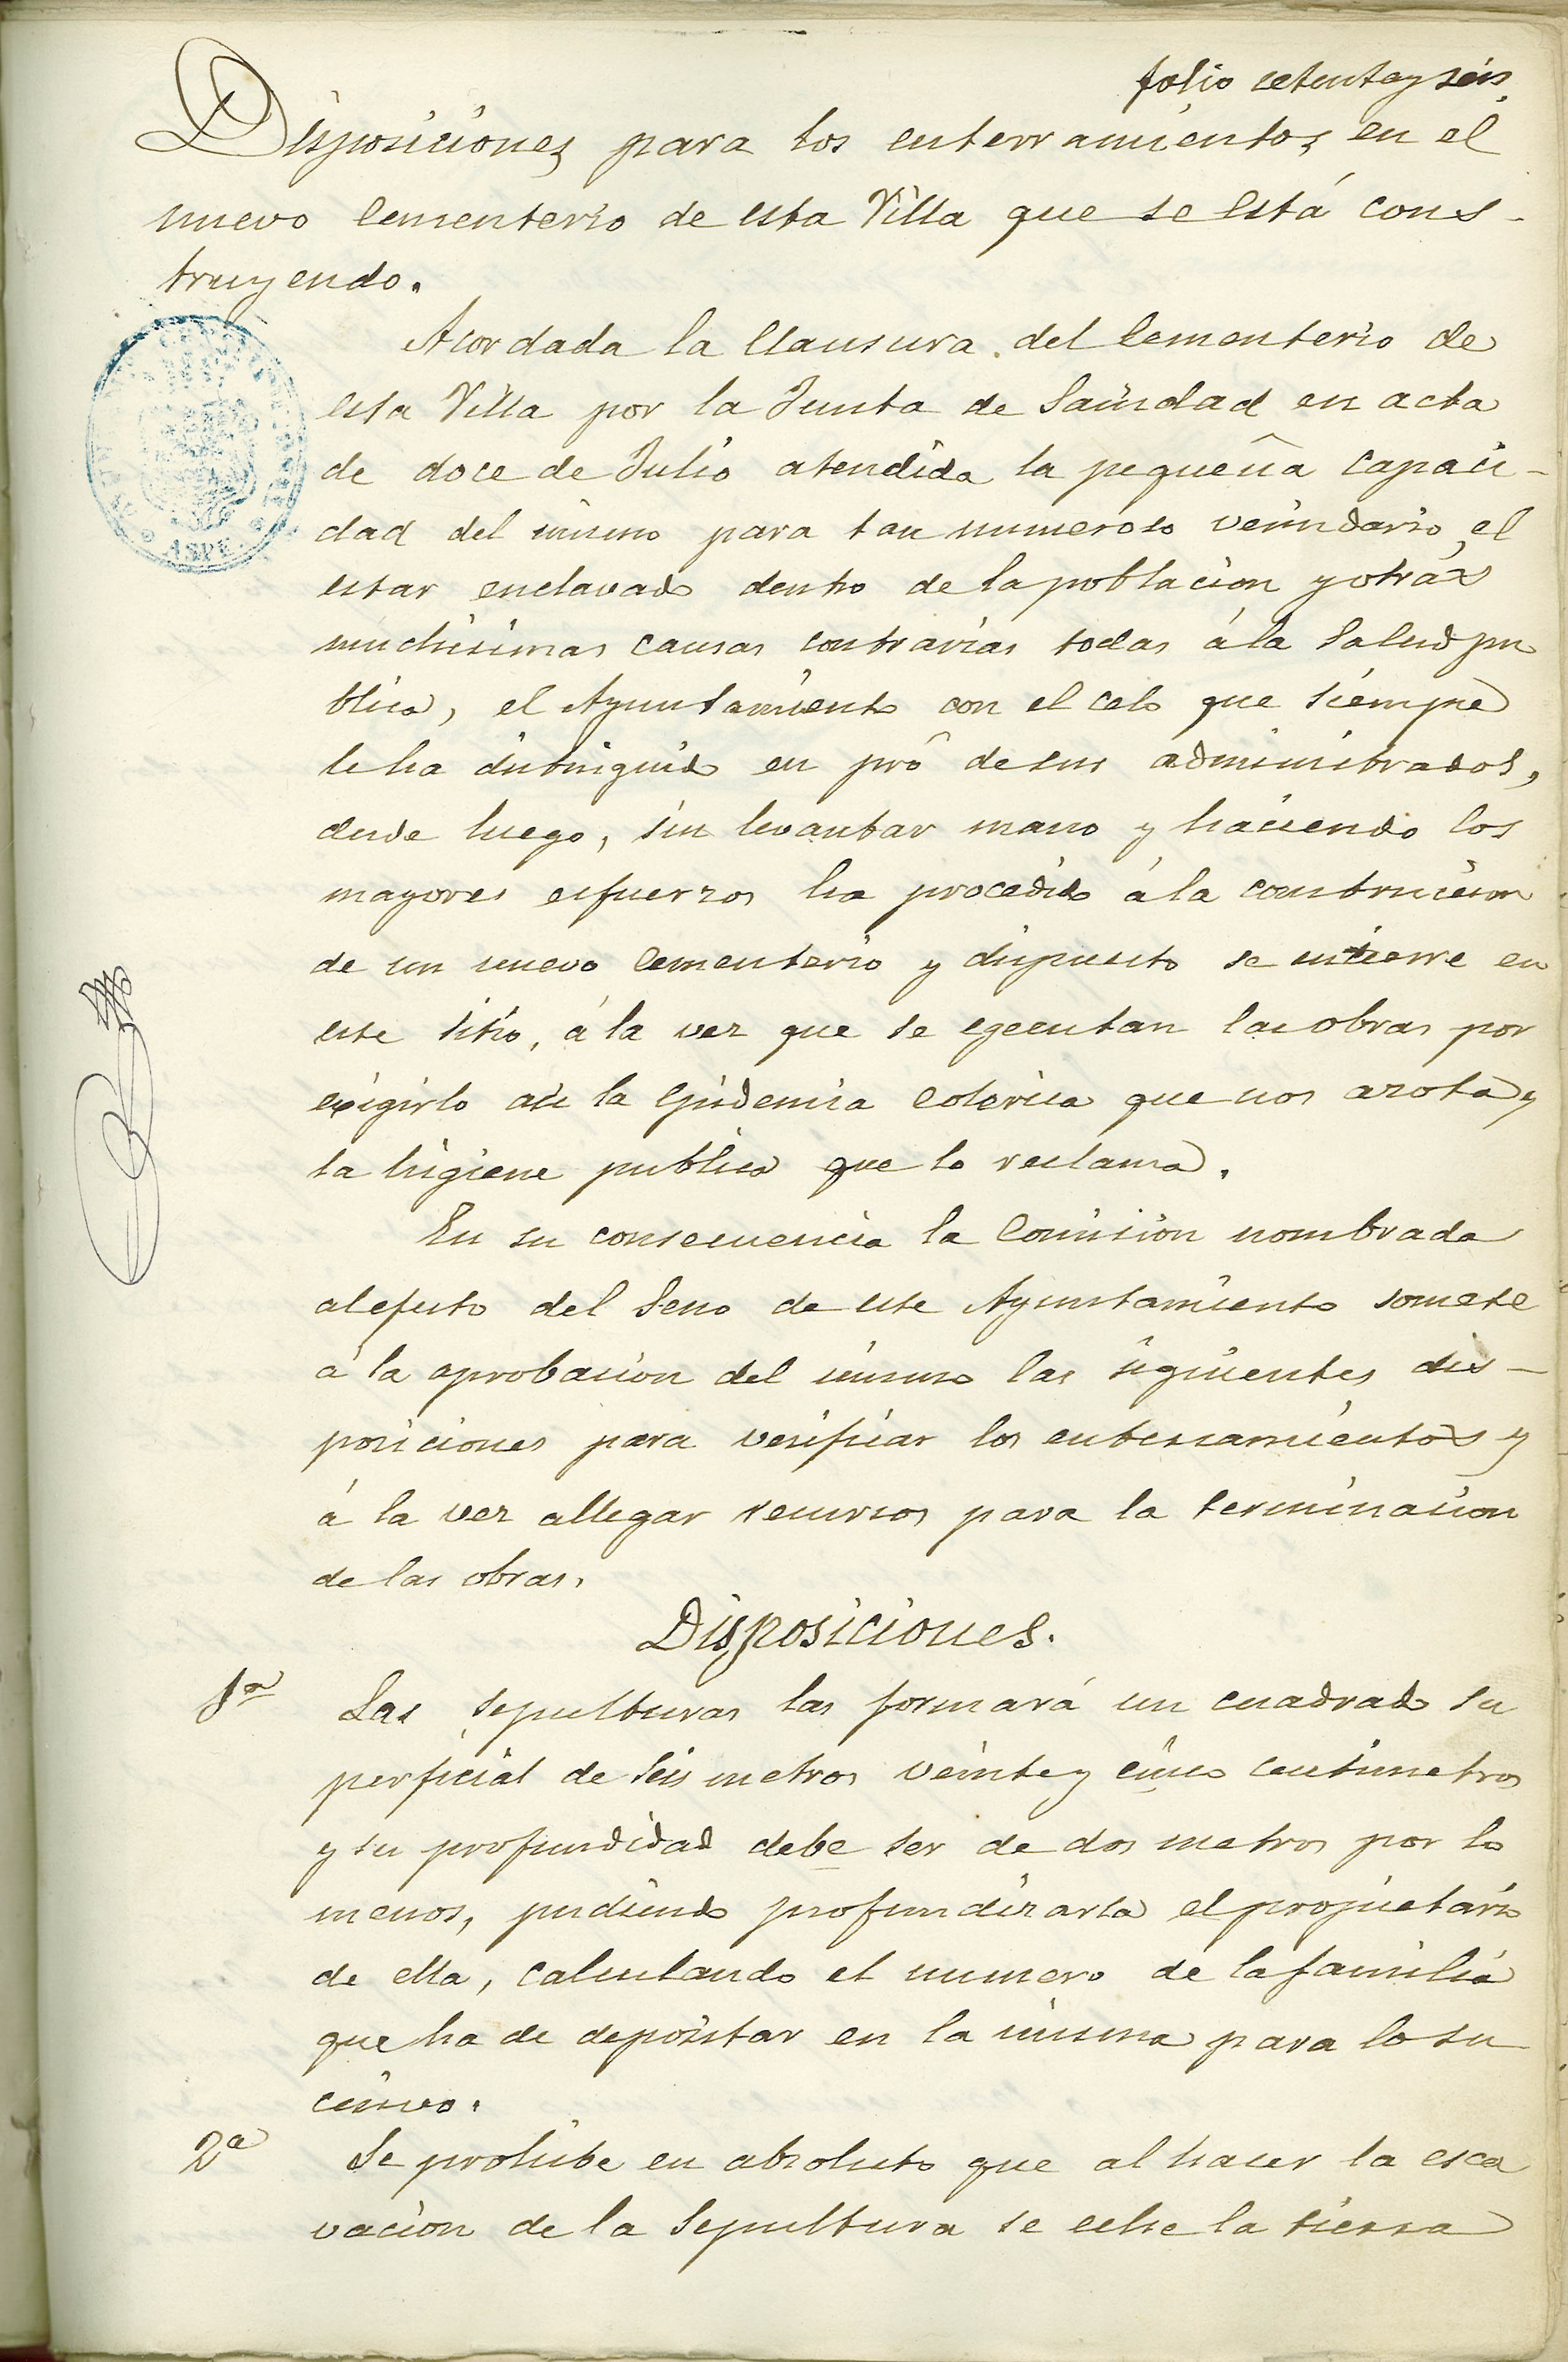 folio setenta y seis.
Disposiciones para los enterramientos en el
nuevo Cementerio de esta Villa que se está cons-
truyendo.
Acordada la Clausura del Cementerio de
esta Villa por la Junta de Sanidad en acta
de doce de Julio atendida la pequeña capaci-
dad del mismo para tan numeroso vecindario, el
estar enclavado dentro de la poblacion y otras
muchisimas causas contrarias todas á la Salud pu
blica, el Ayuntamiento con el celo que siempre
le ha distinguido en pró de sus administrados,
desde luego, sin levantar mano y haciendo los
mayores esfuerzos ha procedido á la construccion
de un nuevo Cementerio y dispuesto se entierre en
este sitio, á la vez que se egecutan las obras por
exigirlo asi la Epidemia colerica que nos azota y
la higiene publica que lo reclama.
En su consecuencia la Comision nombrada
al efecto del Seno de este Ayuntamiento somete
á la aprobacion del mismo las siguientes dis-
posiciones para verificar los enterramientos y
á la vez allegar recursos para la terminacion
de las obras.
Disposiciones.
1ª Las sepulturas las formará un cuadrado su
perficial de seis metros veinte y cinco centimetros
y su profundidad debe ser de dos metros por lo
menos, pudiendo profundizarla el propietario
de ella, calculando el numero de la familia
que ha de depositar en la misma para lo su
cesivo.
2ª Se prohibe en absoluto que al hacer la esca
vacion de la Sepultura se eche la tierra
ASPE